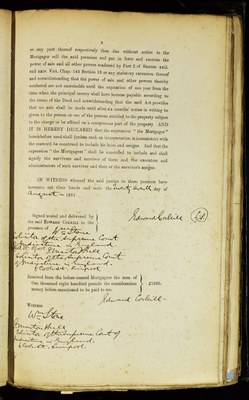 8
or any part thereof respectively then due without notice to the
Mortgagor sell the said premises and put in force and exercise the
power of sale and all other powers conferred by Part 2 of Statute
and notwithstanding that the power of sale and other powers thereby
conferred are not exercisable until the expiration of one year from the
time when the principal money shall have become payable according to
the terms of the Deed and notwithstanding that the said Act provides
that no sale shall be made until after six months' notice in writing be
given to the person or one of the persons entitled to the property subject
to the charge or be affixed on a conspicuous part of the property AND
IT IS HEREBY DECLARED that the expression "the Mortgagor"
hereinbefore used shall (unless such an interpretation is inconsistent with
the context) be construed to include his heirs and assigns And that the
expression "the Mortgagees" shall be construed to include and shall
signify the survivors and survivor of them and the executors and
administrators of such survivor and their or the survivor's assigns.
IN WITNESS whereof the said parties to these presents have
hereunto set their hands and seals the twenty seventh day of
August 1891
Signed sealed and delivered by
the said EDWARD COXHILL in the
presence of
Solicitor of the Supreme Court
of Judicature in England
Received from the before-named Mortgagees the sum of
One thousand eight hundred pounds the consideration
money before-mentioned to be paid to me.
£1800.
Edward Coxhill
WITNESS
Solicitor of the Supreme Court of
Judicature in England.